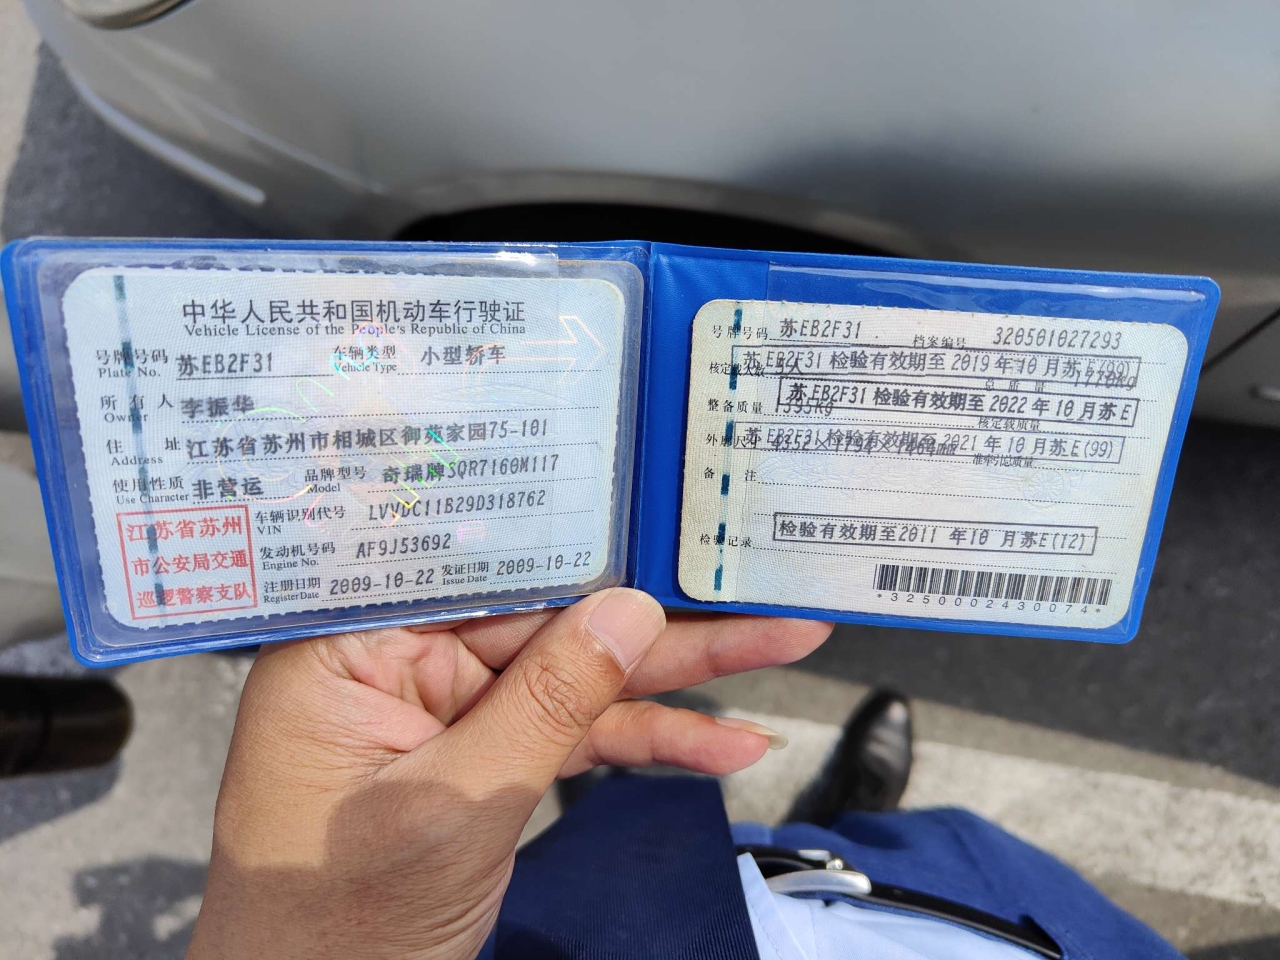 中华人民共和国机动车行驶证
Vehicle License of the People's Republic of China
号牌号码 苏EB2F31 车辆类型 小型轿车
Plate No. Vehicle Type
所有人 李振华
Owner
住址 江苏省苏州市相城区御苑家园75-101
Address
使用性质 非营运 品牌型号 奇瑞牌SQR7160M117
Use Character Model
江苏省苏州
市公安局交通
巡逻警察支队
车辆识别代号 LVVDC11B29D318762
VIN
发动机号码 AF9J53692
Engine No.
注册日期 2009-10-22 发证日期 2009-10-22
Register Date Issue Date
号牌号码 苏EB2F31 档案编号 320501027293
苏EB2F31 检验有效期至2019年10月苏E(99)
核定载人数 5人 总质量
苏EB2F31 检验有效期至2022年10月苏E
整备质量 核定载质量
苏EB2F31 检验有效期至2021年10月苏E(99)
外廓尺寸 准牵引总质量
备注
检验有效期至2011年10月苏E(12)
检验记录
*3250002430074*